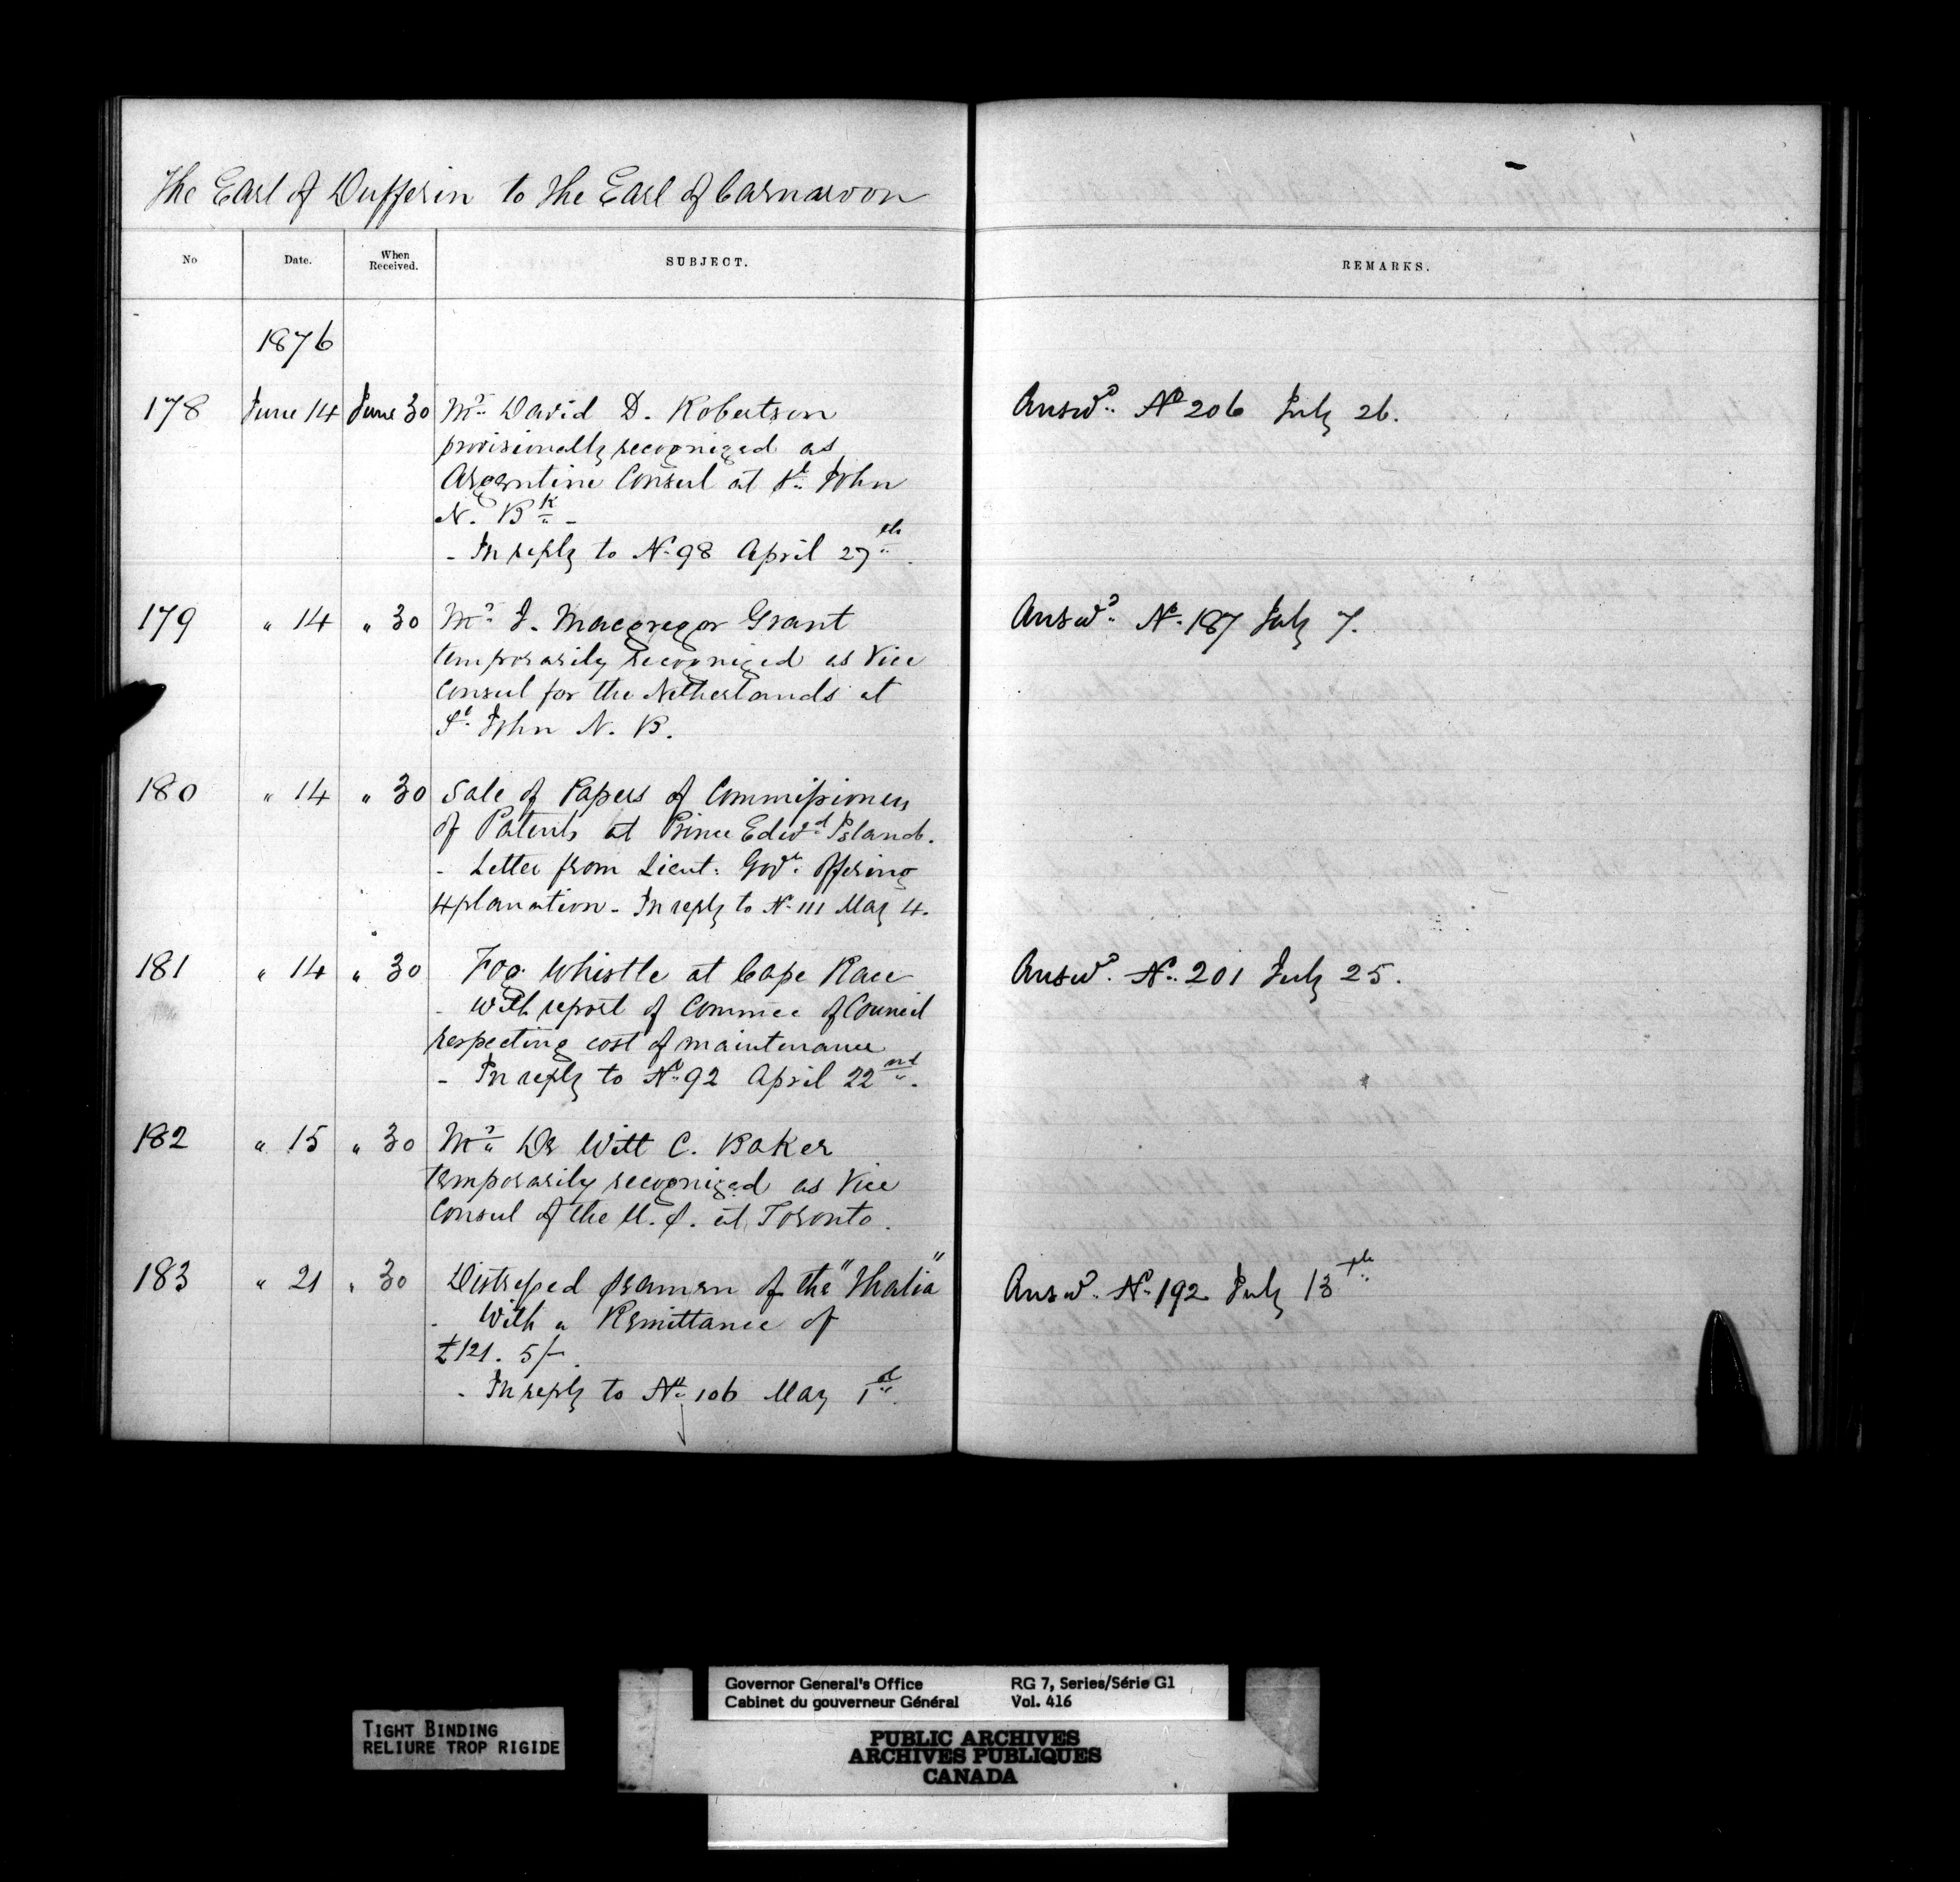 The Earl of Dufferin to the Earl of Carnarvon
No Date. When Received. SUBJECT. REMARKS.
1876
178 June 14 June 30 Mr. David D. Robertson Answd. No 206 July 26.
provisionally recognized as
Argentine Consul at St. John
N. Bk -
- In reply to No 98 April 27th.
179 " 14 " 30 Mr. J. Macgregor Grant Answd. No. 187 July 7.
temporarily recognized as Vice
Consul for the Netherlands at
St. John N. B.
180 " 14 " 30 Sale of Papers of Commissioners
of Patents at Prince Edwd. Island.
- Letter from Lieut: Govr. offering
explanation - In reply to No. 111 May 4.
181 " 14 " 30 Fog Whistle at Cape Race Answd. No. 201 July 25.
- With report of Commee of Council
respecting cost of maintenance
- In reply to No. 92 April 22nd.
182 " 15 " 30 Mr. De Witt C. Baker
temporarily recognized as Vice
Consul of the U. S. at Toronto.
183 " 21 " 30 Distressed seamen of the "Thalia" Answd. No. 192 July 13th
- With a Remittance of
£121. 5/-.
- In reply to No. 106 May 1st.
Governor General's Office RG 7, Series/Série G1
Cabinet du gouverneur Général Vol. 416
TIGHT BINDING
RELIURE TROP RIGIDE
PUBLIC ARCHIVES
ARCHIVES PUBLIQUES
CANADA